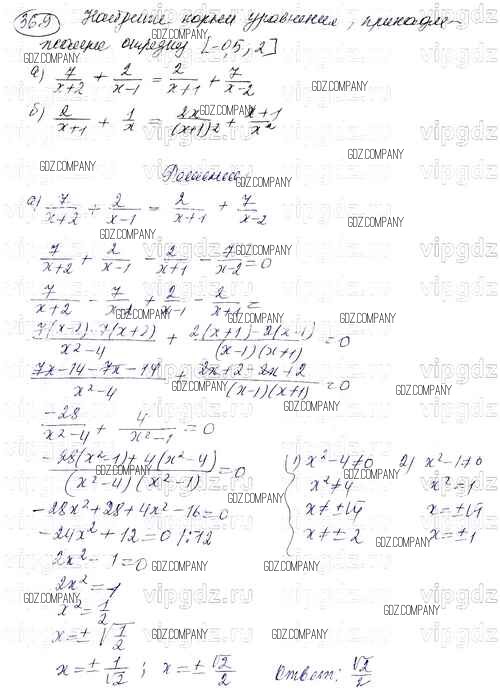 36.9 Найдите корни уравнения, принадле-
жащие отрезку [-0,5; 2]
а) 7/(x+2) + 2/(x-1) = 2/(x+1) + 7/(x-2)
б) 2/(x+1) + 1/x = 2x/(x+1)2 + x+1/x²
Решение
а) 7/(x+2) + 2/(x-1) = 2/(x+1) + 7/(x-2)
7/(x+2) + 2/(x-1) - 2/(x+1) - 7/(x-2) = 0
7/(x+2) - 7/(x-2) + 2/(x-1) - 2/(x+1) =
7(x-2)-7(x+2)/x²-4 + 2(x+1)-2(x-1)/(x-1)(x+1) = 0
7x-14-7x-14/x²-4 + 2x+2-2x+2/(x-1)(x+1) = 0
-28/x²-4 + 4/x²-1 = 0
-28(x²-1)+4(x²-4)/(x²-4)(x²-1) = 0
-28x²+28+4x²-16=0
-24x²+12=0 /:12
2x²-1=0
2x²=1
x²=1/2
x=±√1/2
x=±1/√2; x=±√2/2
1) x²-4≠0
x²≠4
x≠±√4
x≠±2
2) x²-1≠0
x²=1
x=±√1
x=±1
Ответ: √2/2
GDZ.COMPANY
vipgdz.ru